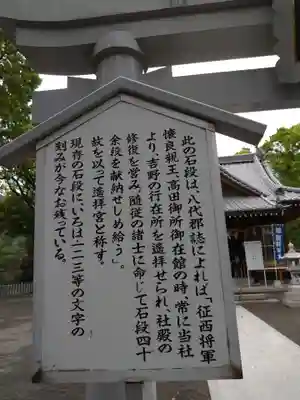 此の石段は、八代郡誌によれば「征西将軍
懐良親王、高田御所御在館の時、常に当社
より、吉野の行在所を遥拝せられ、社殿の
修復を営み、随従の諸士に命じて石段四十
余段を献納せしめ給う」。
故を以って遥拝宮と称す。
現存の石段に、いろは・一二三等の文字の
刻みが今なお残っている。